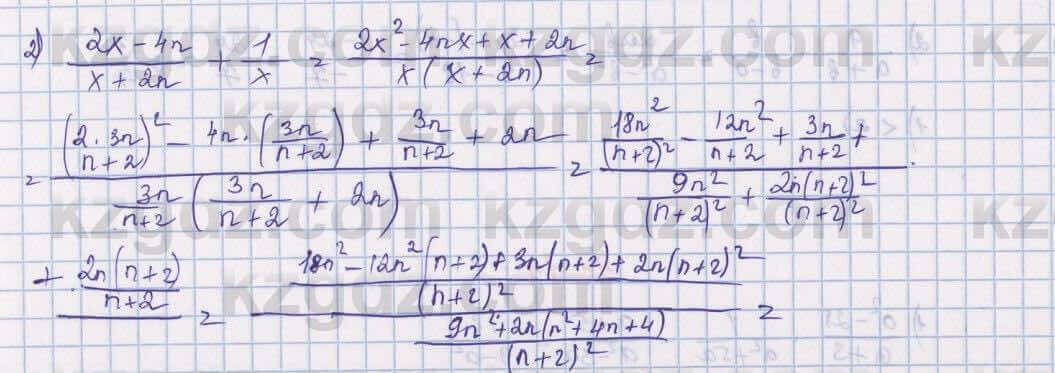 2) (2x - 4n)/(x + 2n) + 1/x = (2x² - 4nx + x + 2n)/(x(x + 2n)) =
= ((2·3n/(n+2))² - 4n·(3n/(n+2)) + 3n/(n+2) + 2n)/(3n/(n+2) (3n/(n+2) + 2n)) = (18n²/(n+2)² - 12n²/(n+2) + 3n/(n+2) +)/(9n²/(n+2)² + 2n(n+2)²/(n+2)²)
+ 2n(n+2)/(n+2) = ((18n² - 12n²(n+2) + 3n(n+2) + 2n(n+2)²)/(n+2)²)/((9n² + 2n(n² + 4n + 4))/(n+2)²) =
kzgdz.com